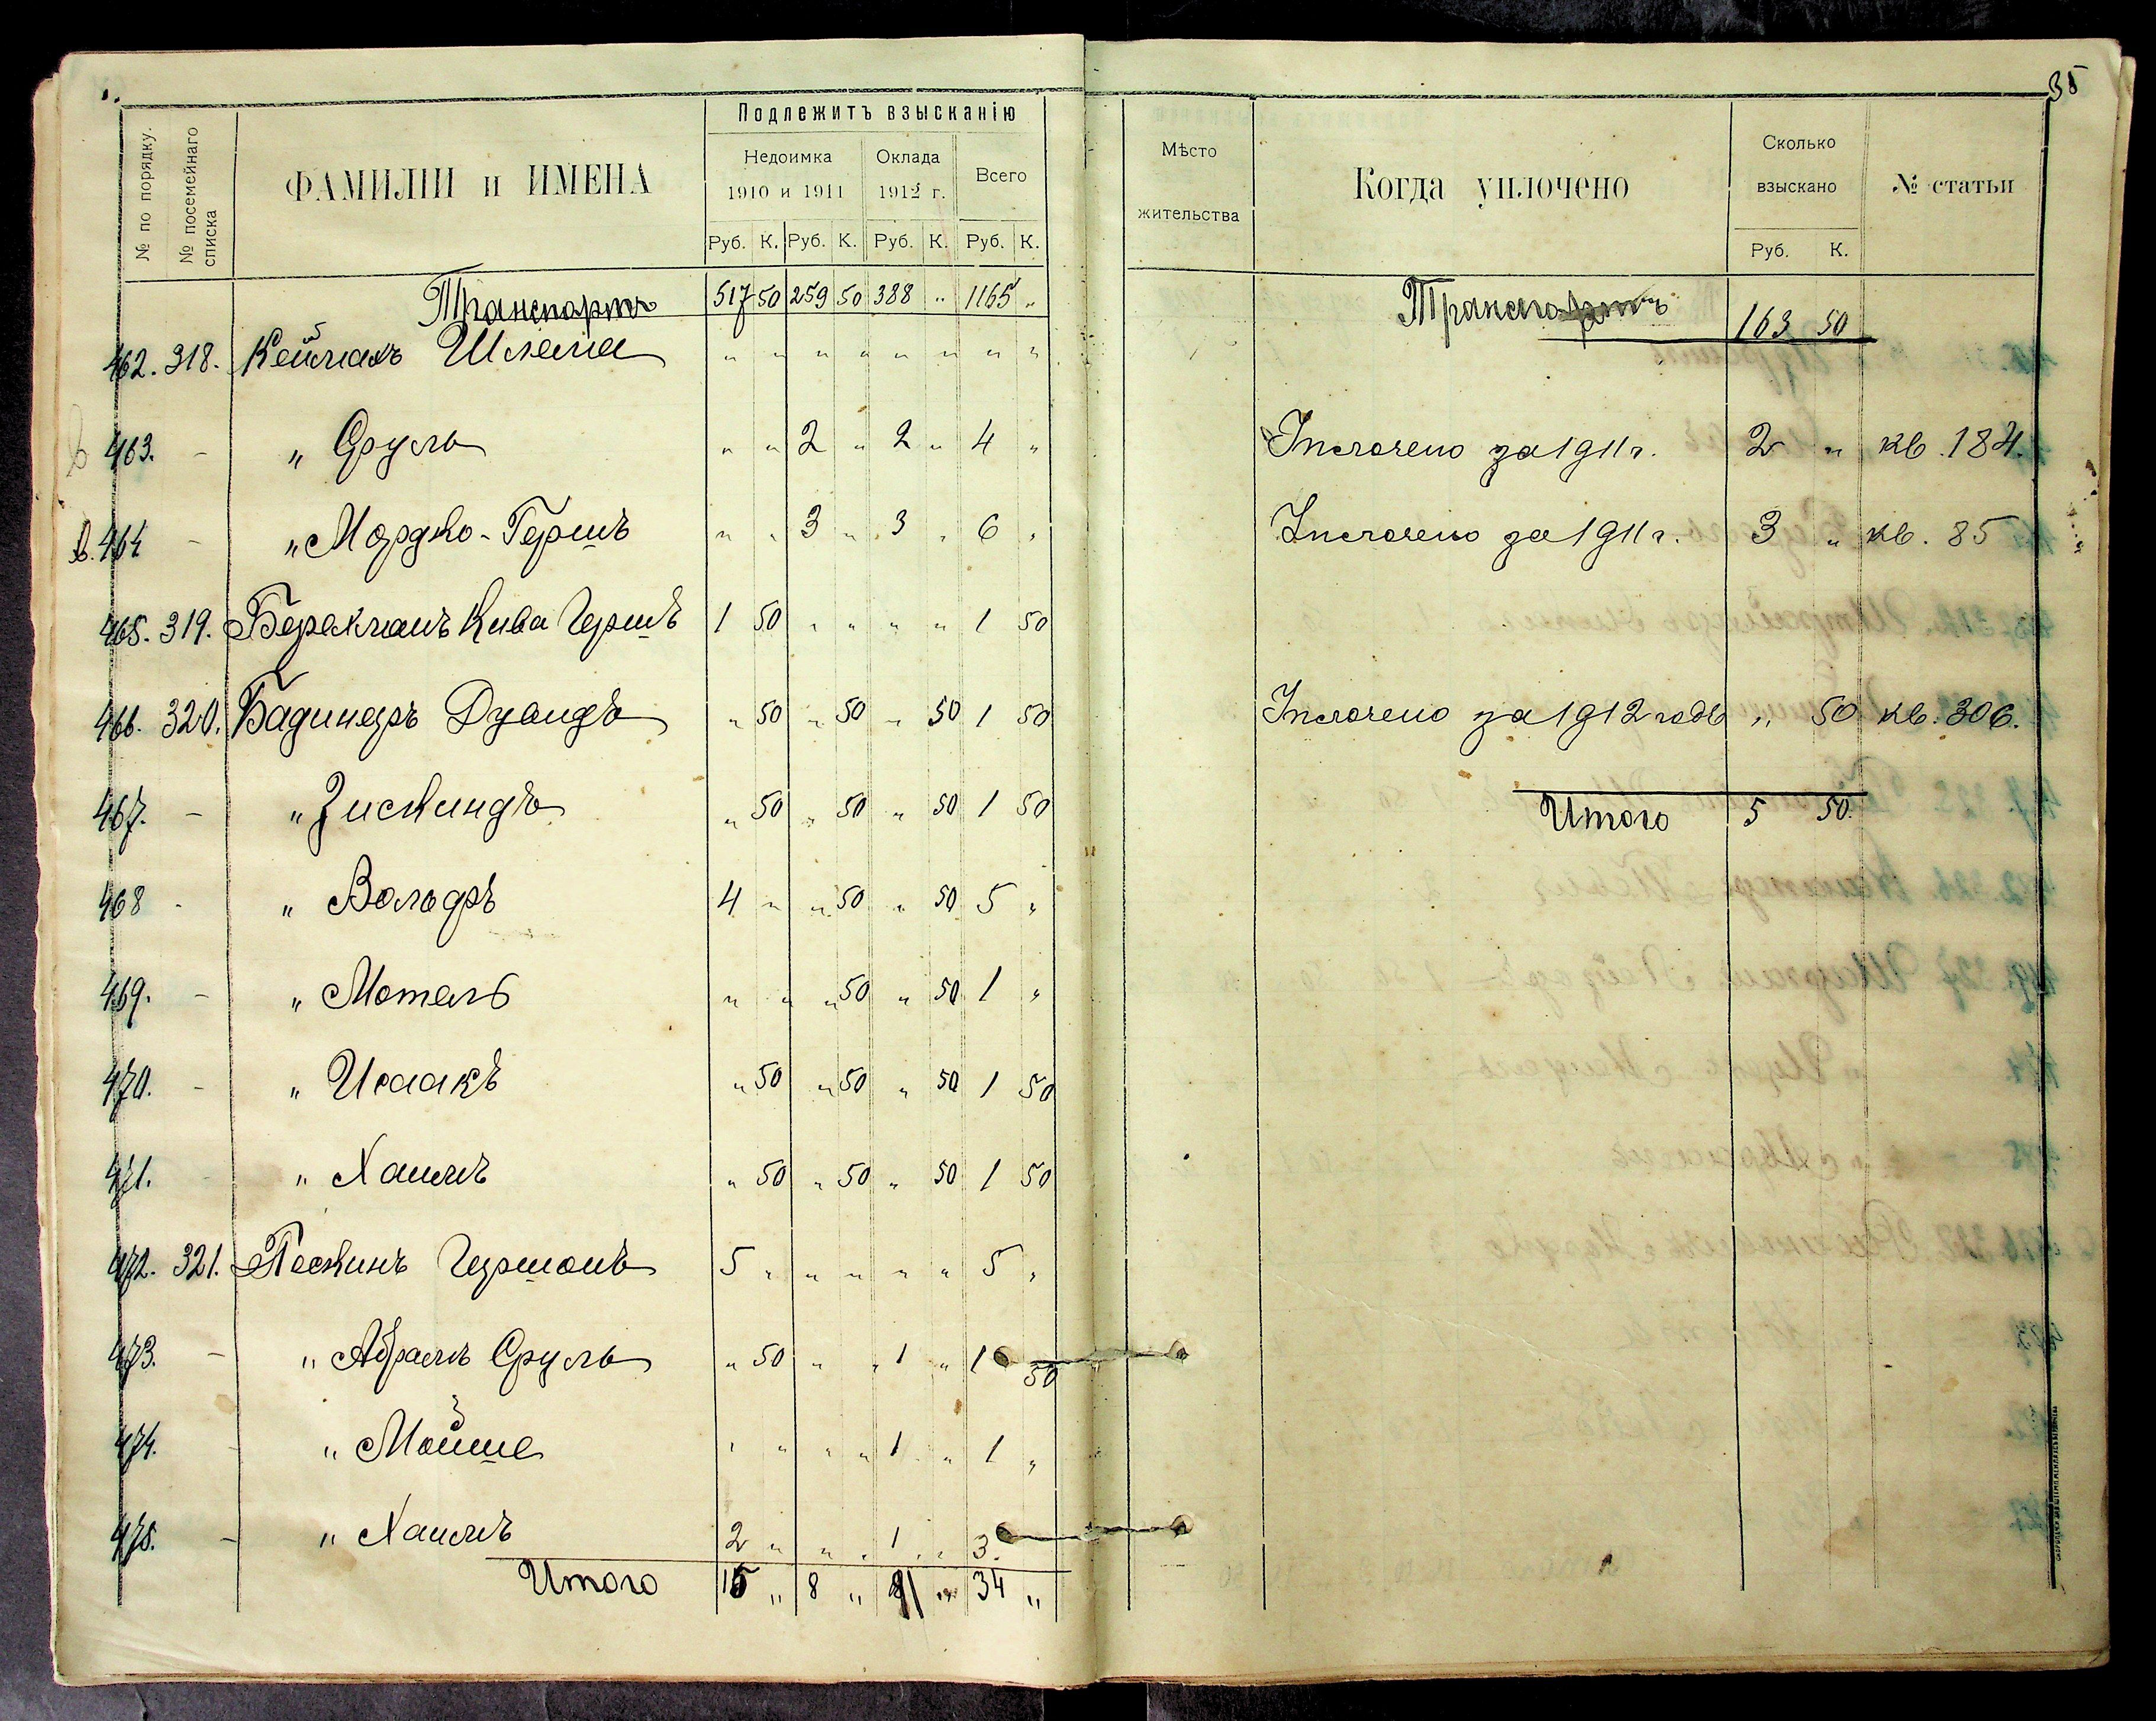 35
№ по порядку.
№ посемейнаго списка
ФАМИЛІИ и ИМЕНА
Подлежитъ взысканію
Недоимка 1910 и 1911
Оклада 1912 г.
Всего
Руб. К. Руб. К. Руб. К. Руб. К.
Мѣсто жительства
Когда уплочено
Сколько взыскано
Руб. К.
№ статьи
Транспортъ 517 50 259 50 388 " 1165 "
462. 318. Шлема " " " " " " " "
463. - " Сруль " " 2 " 2 " 4 "
в. 464 - " Мордко-Гершъ " " 3 " 3 " 6 "
465. 319. Кива Гершъ 1 50 " " " " 1 50
466. 320. Бадинеръ Дувидъ " 50 " 50 " 50 1 50
467. - " Зискиндъ " 50 " 50 " 50 1 50
468 - " Вольфъ 4 " " 50 " 50 5 "
469. - " Мотель " " " 50 " 50 1 "
470. - " Исаакъ " 50 " 50 " 50 1 50
471. - " Хаимъ " 50 " 50 " 50 1 50
472. 321. Пескинъ Гершонъ 5 " " " " " 5 "
473. - " Абрамъ Сруль " 50 " " 1 " 1 50
474. - " Мойше " " " " 1 " 1 "
475. - " Хаимъ 2 " " " 1 " 3 "
Итого 15 " 8 " 11 " 34 "
Транспортъ 163 50
Уплочено за 1911 г. 2 " кв. 184.
Уплочено за 1911 г. 3 " кв. 85
Уплочено за 1912 годъ " 50 кв. 306.
Итого 5 50.